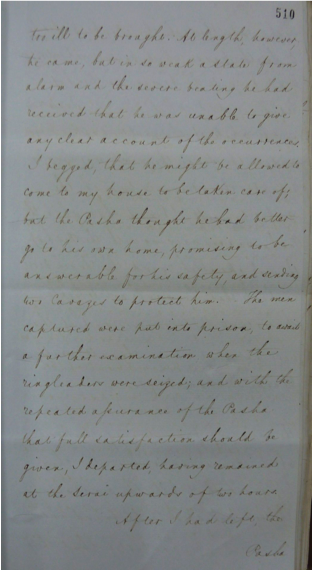 510
too ill to be brought. At length, however
he came, but in so weak a state from
alarm and the severe beating he had
received that he was unable to give
any clear account of the occurrences.
I begged, that he might be allowed to
come to my house to be taken care of;
but the Pasha thought he had better
go to his own home, promising to be
answerable for his safety, and sending
two Cavazes to protect him. The men
captured were put into prison, to await
a further examination when the
ringleaders were seized; and with the
repeated assurance of the Pasha
that full satisfaction should be
given, I departed, having remained
at the Serai upwards of two hours
After I had left the
Pasha